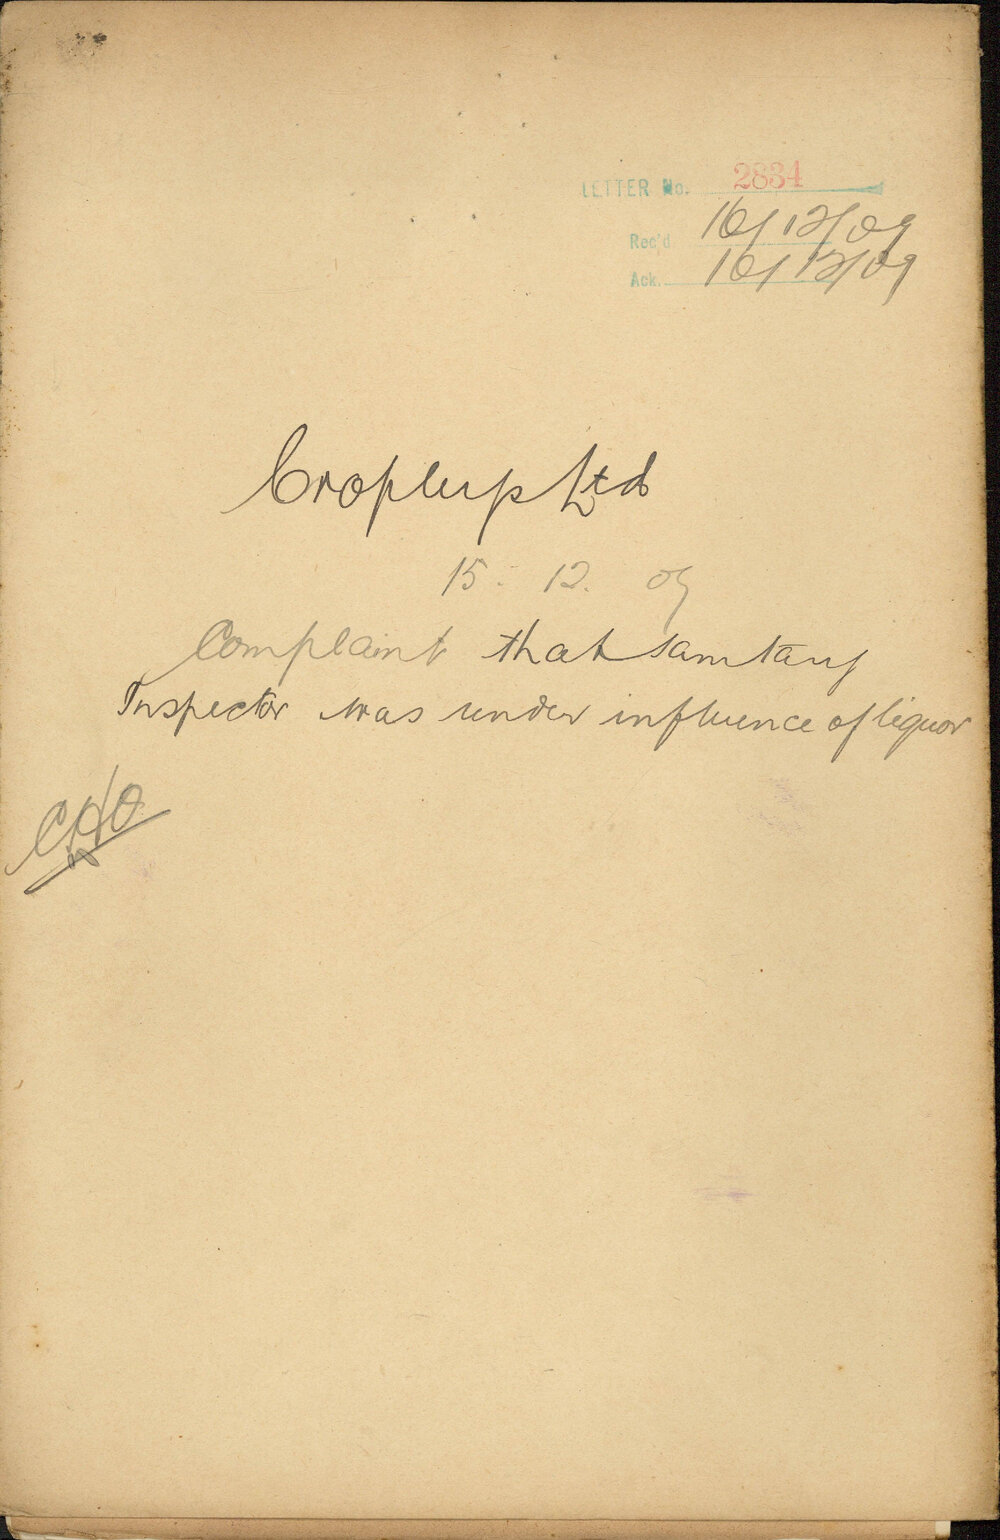 LETTER No. 2834
Rec'd 16/12/09
Ack. 16/12/09
Ltd
15. 12. 09
Complaint that Sanitary
Inspector was under influence of liquor
CHO